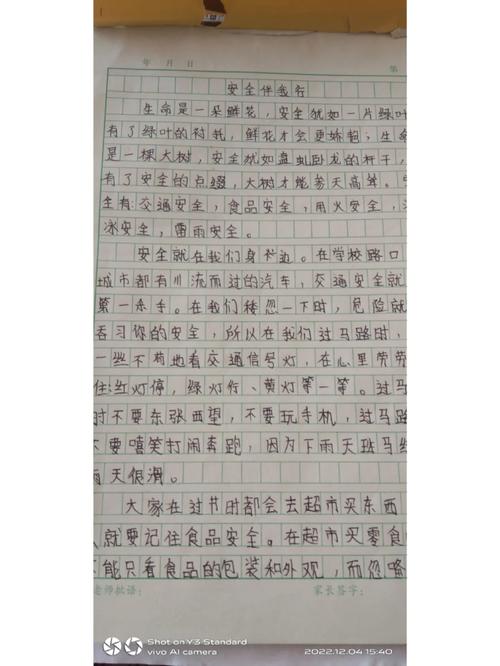 年 月 日 第
安全伴我行
生命是一朵鲜花，安全犹如一片绿叶
有了绿叶的衬托，鲜花才会更娇艳；生命
是一棵大树，安全犹如盘虬卧龙的杆干，
有了安全的点缀，大树才能参天高耸。
生有：交通安全，食品安全，用火安全，
泳安全，雷雨安全。
安全就在我们身边。在学校路口
城市都有川流而过的汽车，交通安全就
第一杀手。在我们楼忽一下时，危险就
吞习你的安全，所以在我们过马路时，
一丝不苟地看交通信号灯，在心里劳劳
住：红灯停，绿灯行、黄灯等一等。过马
时不要东张西望，不要玩手机，过马路
不要嘻笑打闹奔跑，因为下雨天班马线
雨天很滑。
大家在过节时都会去超市买东西
就要记住食品安全。在超市买零食
不能只看食品的包装和外观，而忽略
老师批语： 家长签字：
Shot on Y3 Standard
vivo AI camera
2022.12.04 15:40